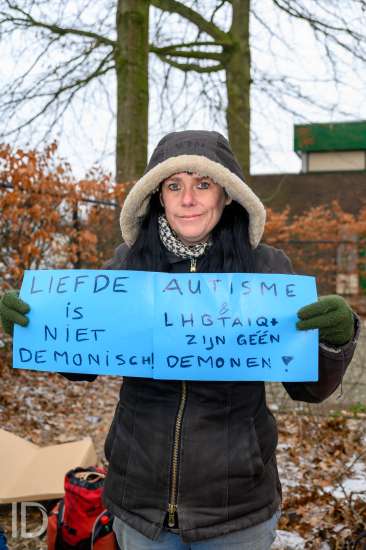 LIEFDE
is
NIET
DEMONISCH!
AUTISME
&
LHBTAIQ+
ZIJN GEÉN
DEMONEN!
ID